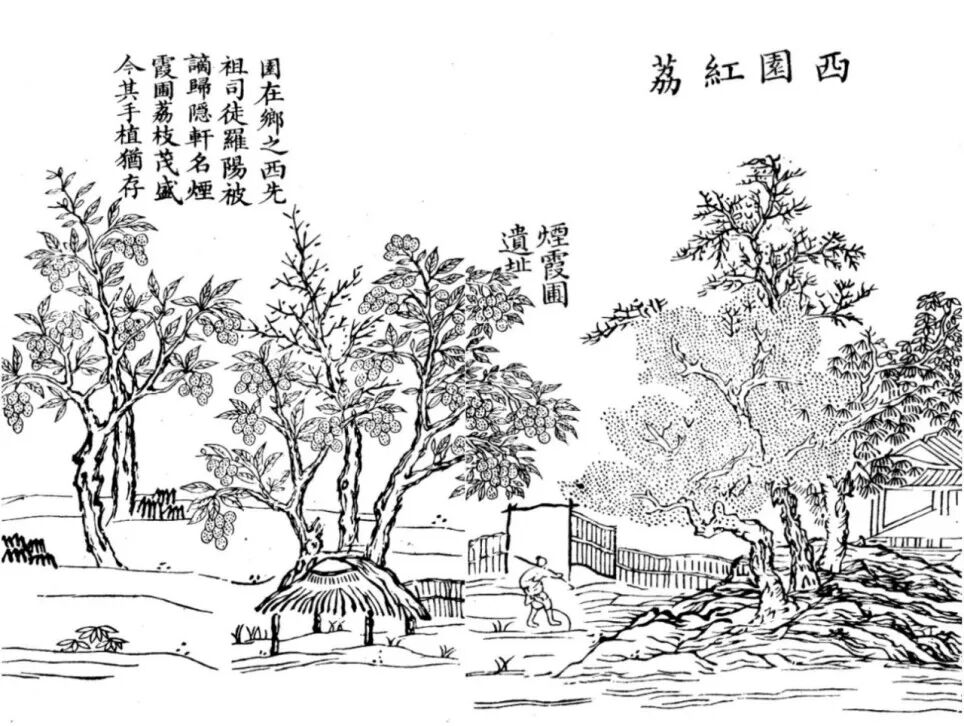 西園紅荔
煙霞圃
遺址
園在鄉之西先
祖司徒羅陽被
謫歸隱軒名煙
霞圃荔枝茂盛
今其手植猶存